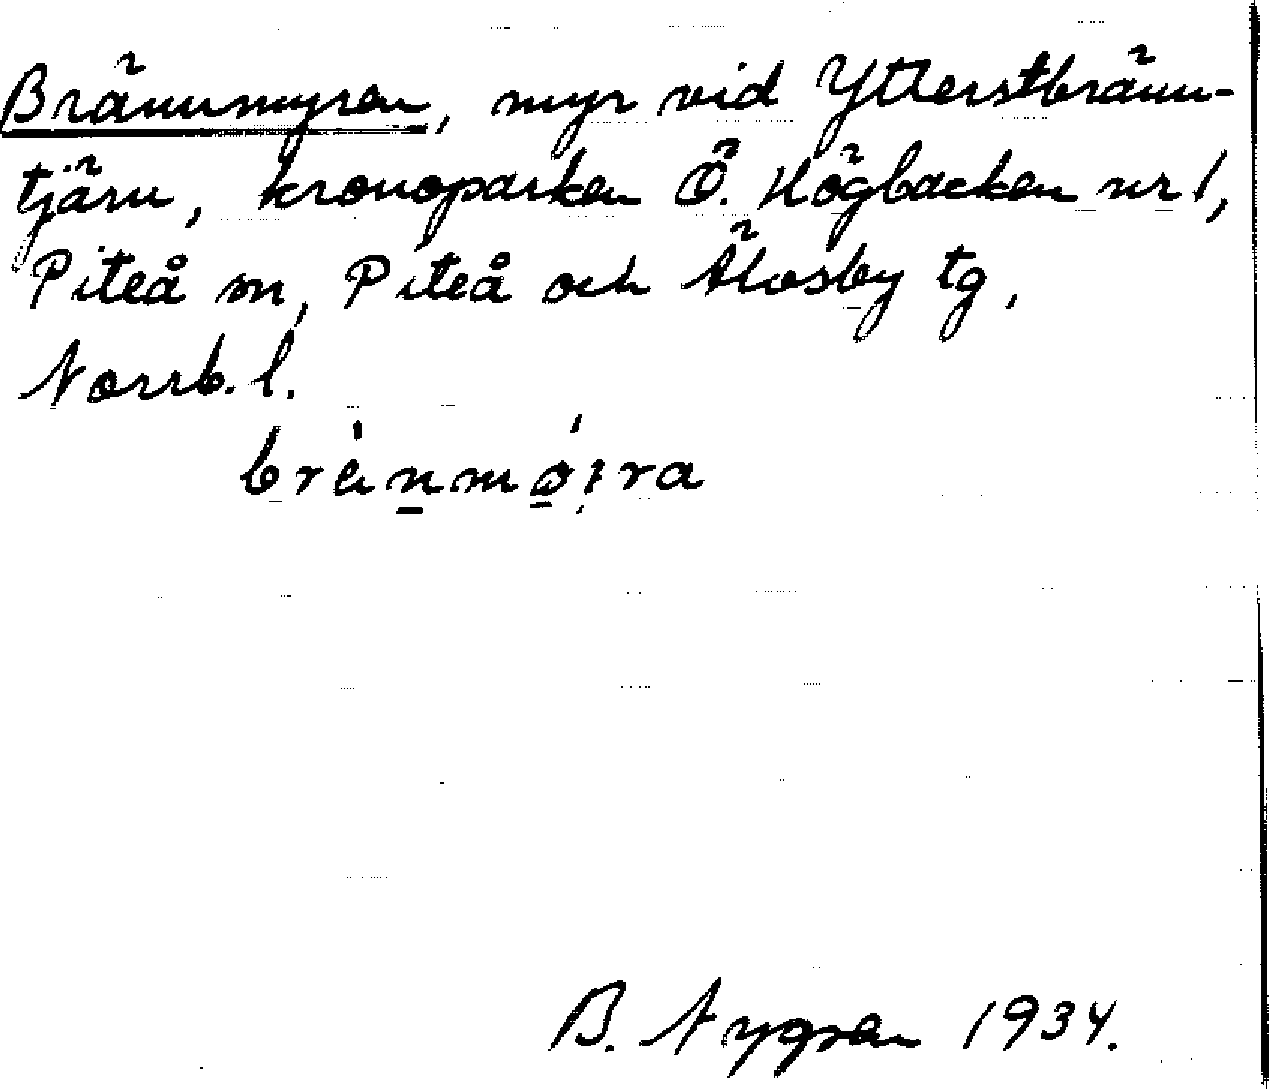 Brännmyren, myr vid Ytterstbränn-
tjärn, kronoparken Ö. Högbacken nr 1,
Piteå m, Piteå och Älvsby tg,
Norrb. l.
B. Nygren 1934.